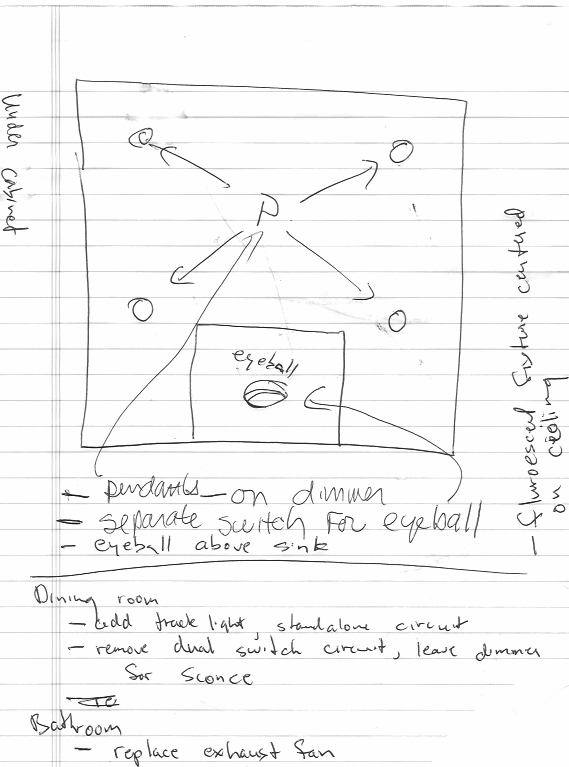 Under Cabinet
P
eyeball
- Fluroescent fixture centered
on ceiling
- pendants - on dimmer
- separate switch for eyeball
- eyeball above sink
Dining room
- add track light, standalone circuit
- remove dual switch circuit, leave dimmer
for sconce
Bathroom
- replace exhaust fan